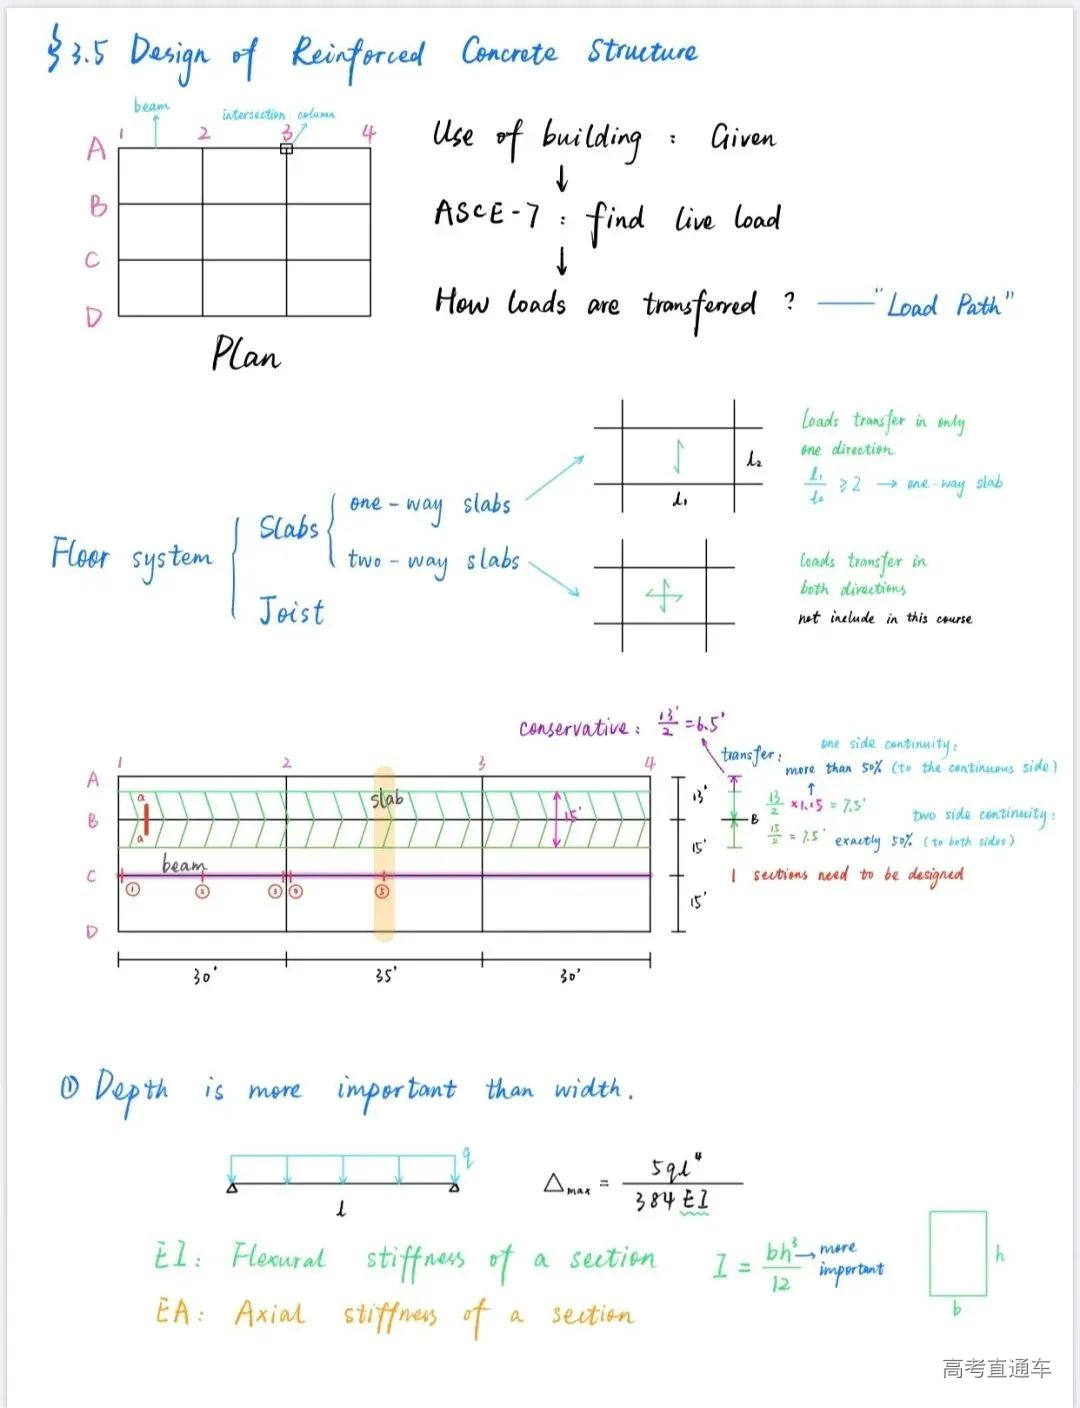 § 3.5 Design of Reinforced Concrete Structure
beam
intersection: column
1 2 3 4
A
B
C
D
Plan
Use of building : Given
↓
ASCE-7 : find live load
↓
How loads are transferred ? — "Load Path"
Floor system
Slabs
one-way slabs
two-way slabs
Joist
l₂
l₁
Loads transfer in only
one direction
≥ 2 → one-way slab
Loads transfer in
both directions
not include in this course
conservative: 13'/2 = 6.5'
transfer:
one side continuity:
more than 50% (to the continuous side)
13/2 × 1.15 = 7.5'
two side continuity:
15/2 = 7.5' exactly 50% (to both sides)
| sections need to be designed
1 2 3 4
A
B
C
D
a
a
slab
15'
beam
①
13'
15'
15'
B
30' 35' 30'
① Depth is more important than width.
q
l
Δmax = 5ql⁴ / 384EI
EI: Flexural stiffness of a section
I = bh³/12 → more
important
h
b
EA: Axial stiffness of a section
高考直通车